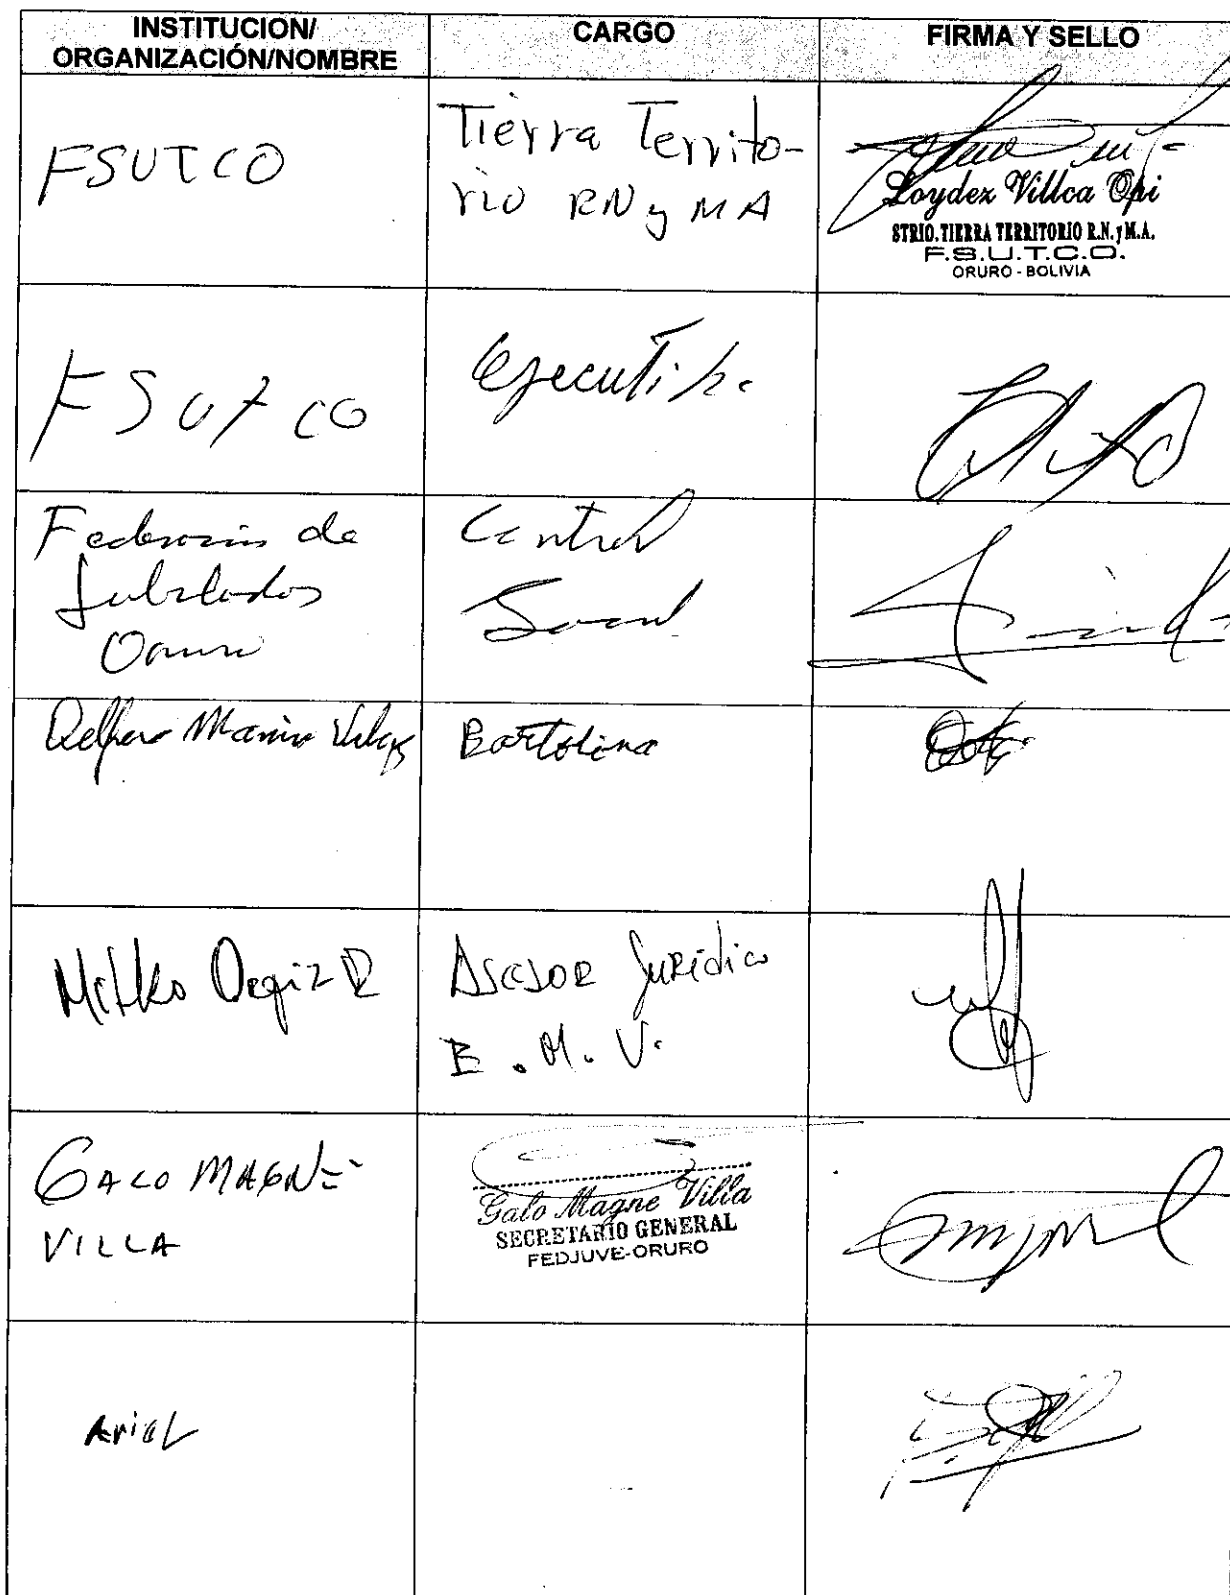 INSTITUCION/
ORGANIZACIÓN/NOMBRE
CARGO
FIRMA Y SELLO
FSUTCO
Tierra Territo-
rio RN y MA
Loydez Villca Opi
STRIO. TIERRA TERRITORIO R.N. y M.A.
F.S.U.T.C.O.
ORURO - BOLIVIA
FSUTCO
Federación de
Jubilados
Oruro
Control
Social
Bartolina
Asesor Jurídico
B.M.V.
GALO MAGNE
VILLA
Galo Magne Villa
SECRETARIO GENERAL
FEDJUVE-ORURO
Ariel